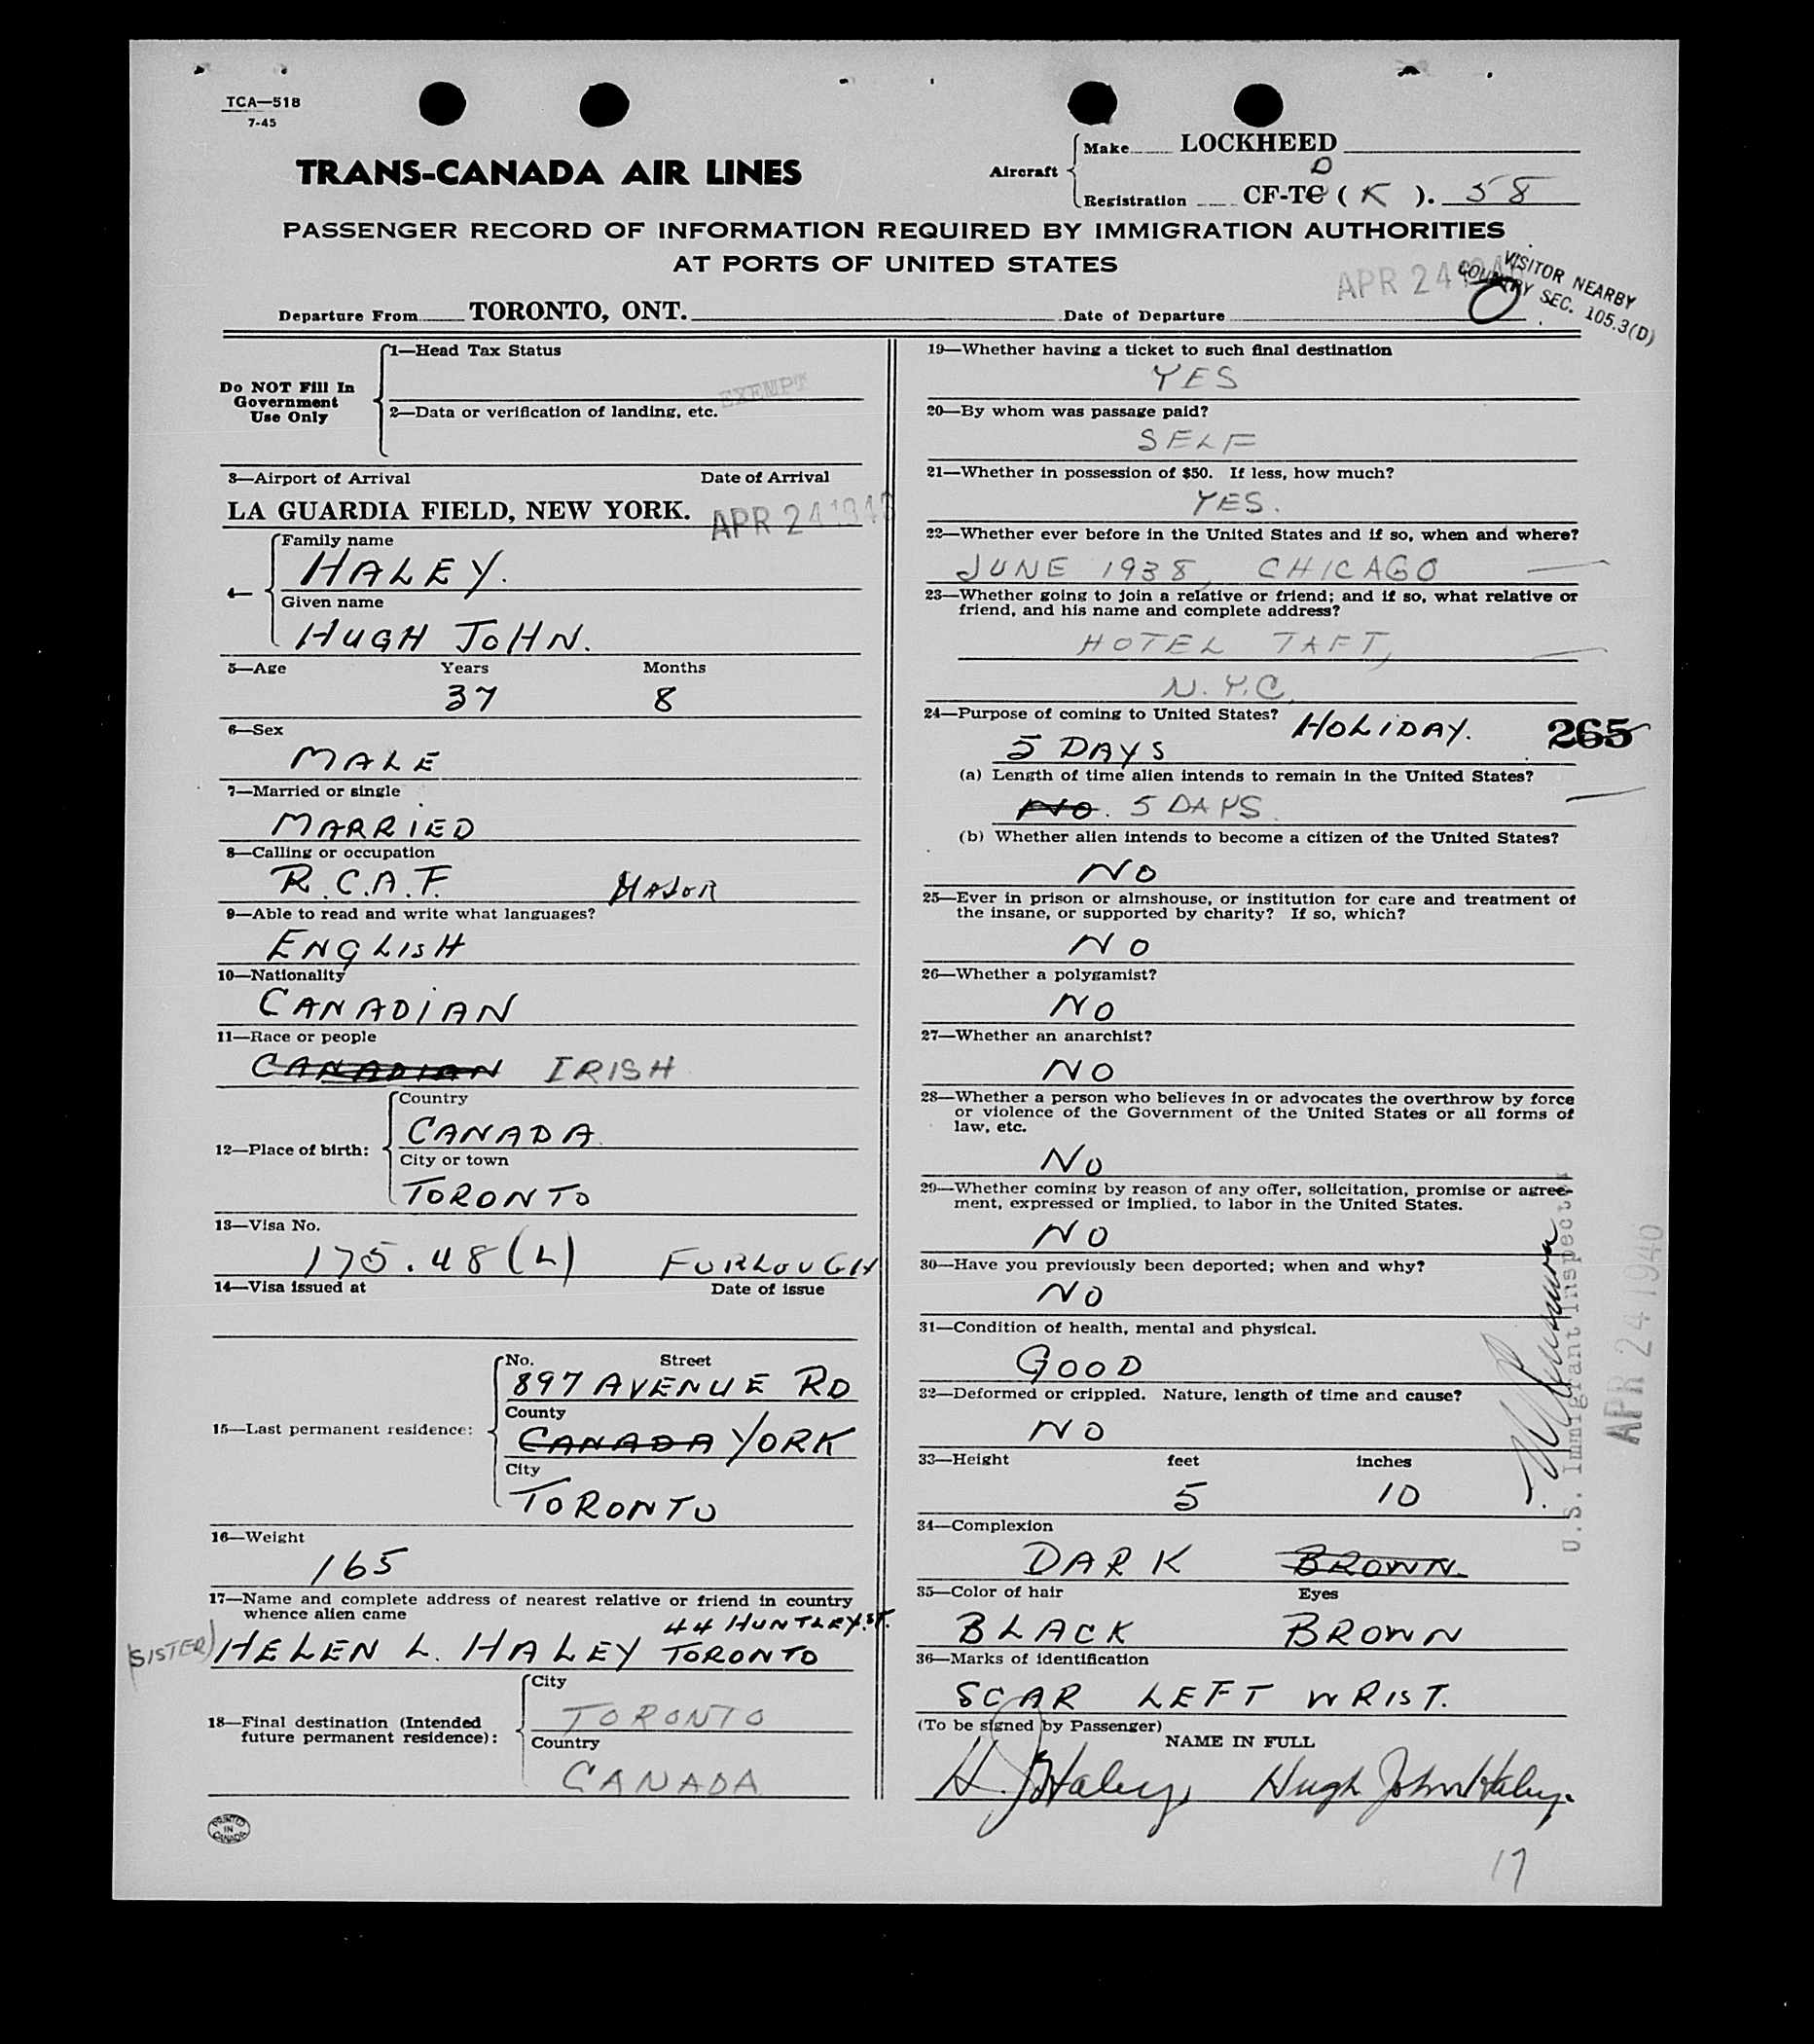 TCA—518
7-45
TRANS-CANADA AIR LINES
Aircraft
Make LOCKHEED
D
Registration CF-TC ( K ). 58
PASSENGER RECORD OF INFORMATION REQUIRED BY IMMIGRATION AUTHORITIES
AT PORTS OF UNITED STATES
APR 24
VISITOR NEARBY
COUNTRY SEC. 105.3(D)
Departure From TORONTO, ONT.
Date of Departure
Do NOT Fill In
Government
Use Only
1—Head Tax Status
EXEMPT
2—Data or verification of landing, etc.
3—Airport of Arrival Date of Arrival
LA GUARDIA FIELD, NEW YORK. APR 24 1940
4—
Family name
HALEY.
Given name
HUGH JOHN.
5—Age Years Months
37 8
6—Sex
MALE
7—Married or single
MARRIED
8—Calling or occupation
R.C.A.F. MAJOR
9—Able to read and write what languages?
ENGLISH
10—Nationality
CANADIAN
11—Race or people
CANADIAN IRISH
12—Place of birth:
Country
CANADA
City or town
TORONTO
13—Visa No.
175.48(L) FURLOUGH
14—Visa issued at Date of issue
15—Last permanent residence:
No. Street
897 AVENUE RD
County
CANADA YORK
City
TORONTO
16—Weight
165
17—Name and complete address of nearest relative or friend in country
whence alien came
44 HUNTLEY ST.
(SISTER) HELEN L. HALEY TORONTO
18—Final destination (Intended
future permanent residence):
City
TORONTO
Country
CANADA
PRINTED
IN
CANADA
19—Whether having a ticket to such final destination
YES
20—By whom was passage paid?
SELF
21—Whether in possession of $50. If less, how much?
YES.
22—Whether ever before in the United States and if so, when and where?
JUNE 1938, CHICAGO
23—Whether going to join a relative or friend; and if so, what relative or
friend, and his name and complete address?
HOTEL TAFT,
N.Y.C.
24—Purpose of coming to United States? HOLIDAY.
265
5 DAYS
(a) Length of time alien intends to remain in the United States?
NO. 5 DAYS.
(b) Whether alien intends to become a citizen of the United States?
NO
25—Ever in prison or almshouse, or institution for care and treatment of
the insane, or supported by charity? If so, which?
NO
26—Whether a polygamist?
NO
27—Whether an anarchist?
NO
28—Whether a person who believes in or advocates the overthrow by force
or violence of the Government of the United States or all forms of
law, etc.
NO
29—Whether coming by reason of any offer, solicitation, promise or agree-
ment, expressed or implied, to labor in the United States.
NO
30—Have you previously been deported; when and why?
NO
31—Condition of health, mental and physical.
GOOD
32—Deformed or crippled. Nature, length of time and cause?
NO
33—Height feet inches
5 10
34—Complexion
DARK BROWN.
35—Color of hair Eyes
BLACK BROWN
36—Marks of identification
SCAR LEFT WRIST.
(To be signed by Passenger)
NAME IN FULL
H. J. Haley, Hugh John Haley.
U.S. Immigrant Inspector
APR 24 1940
17